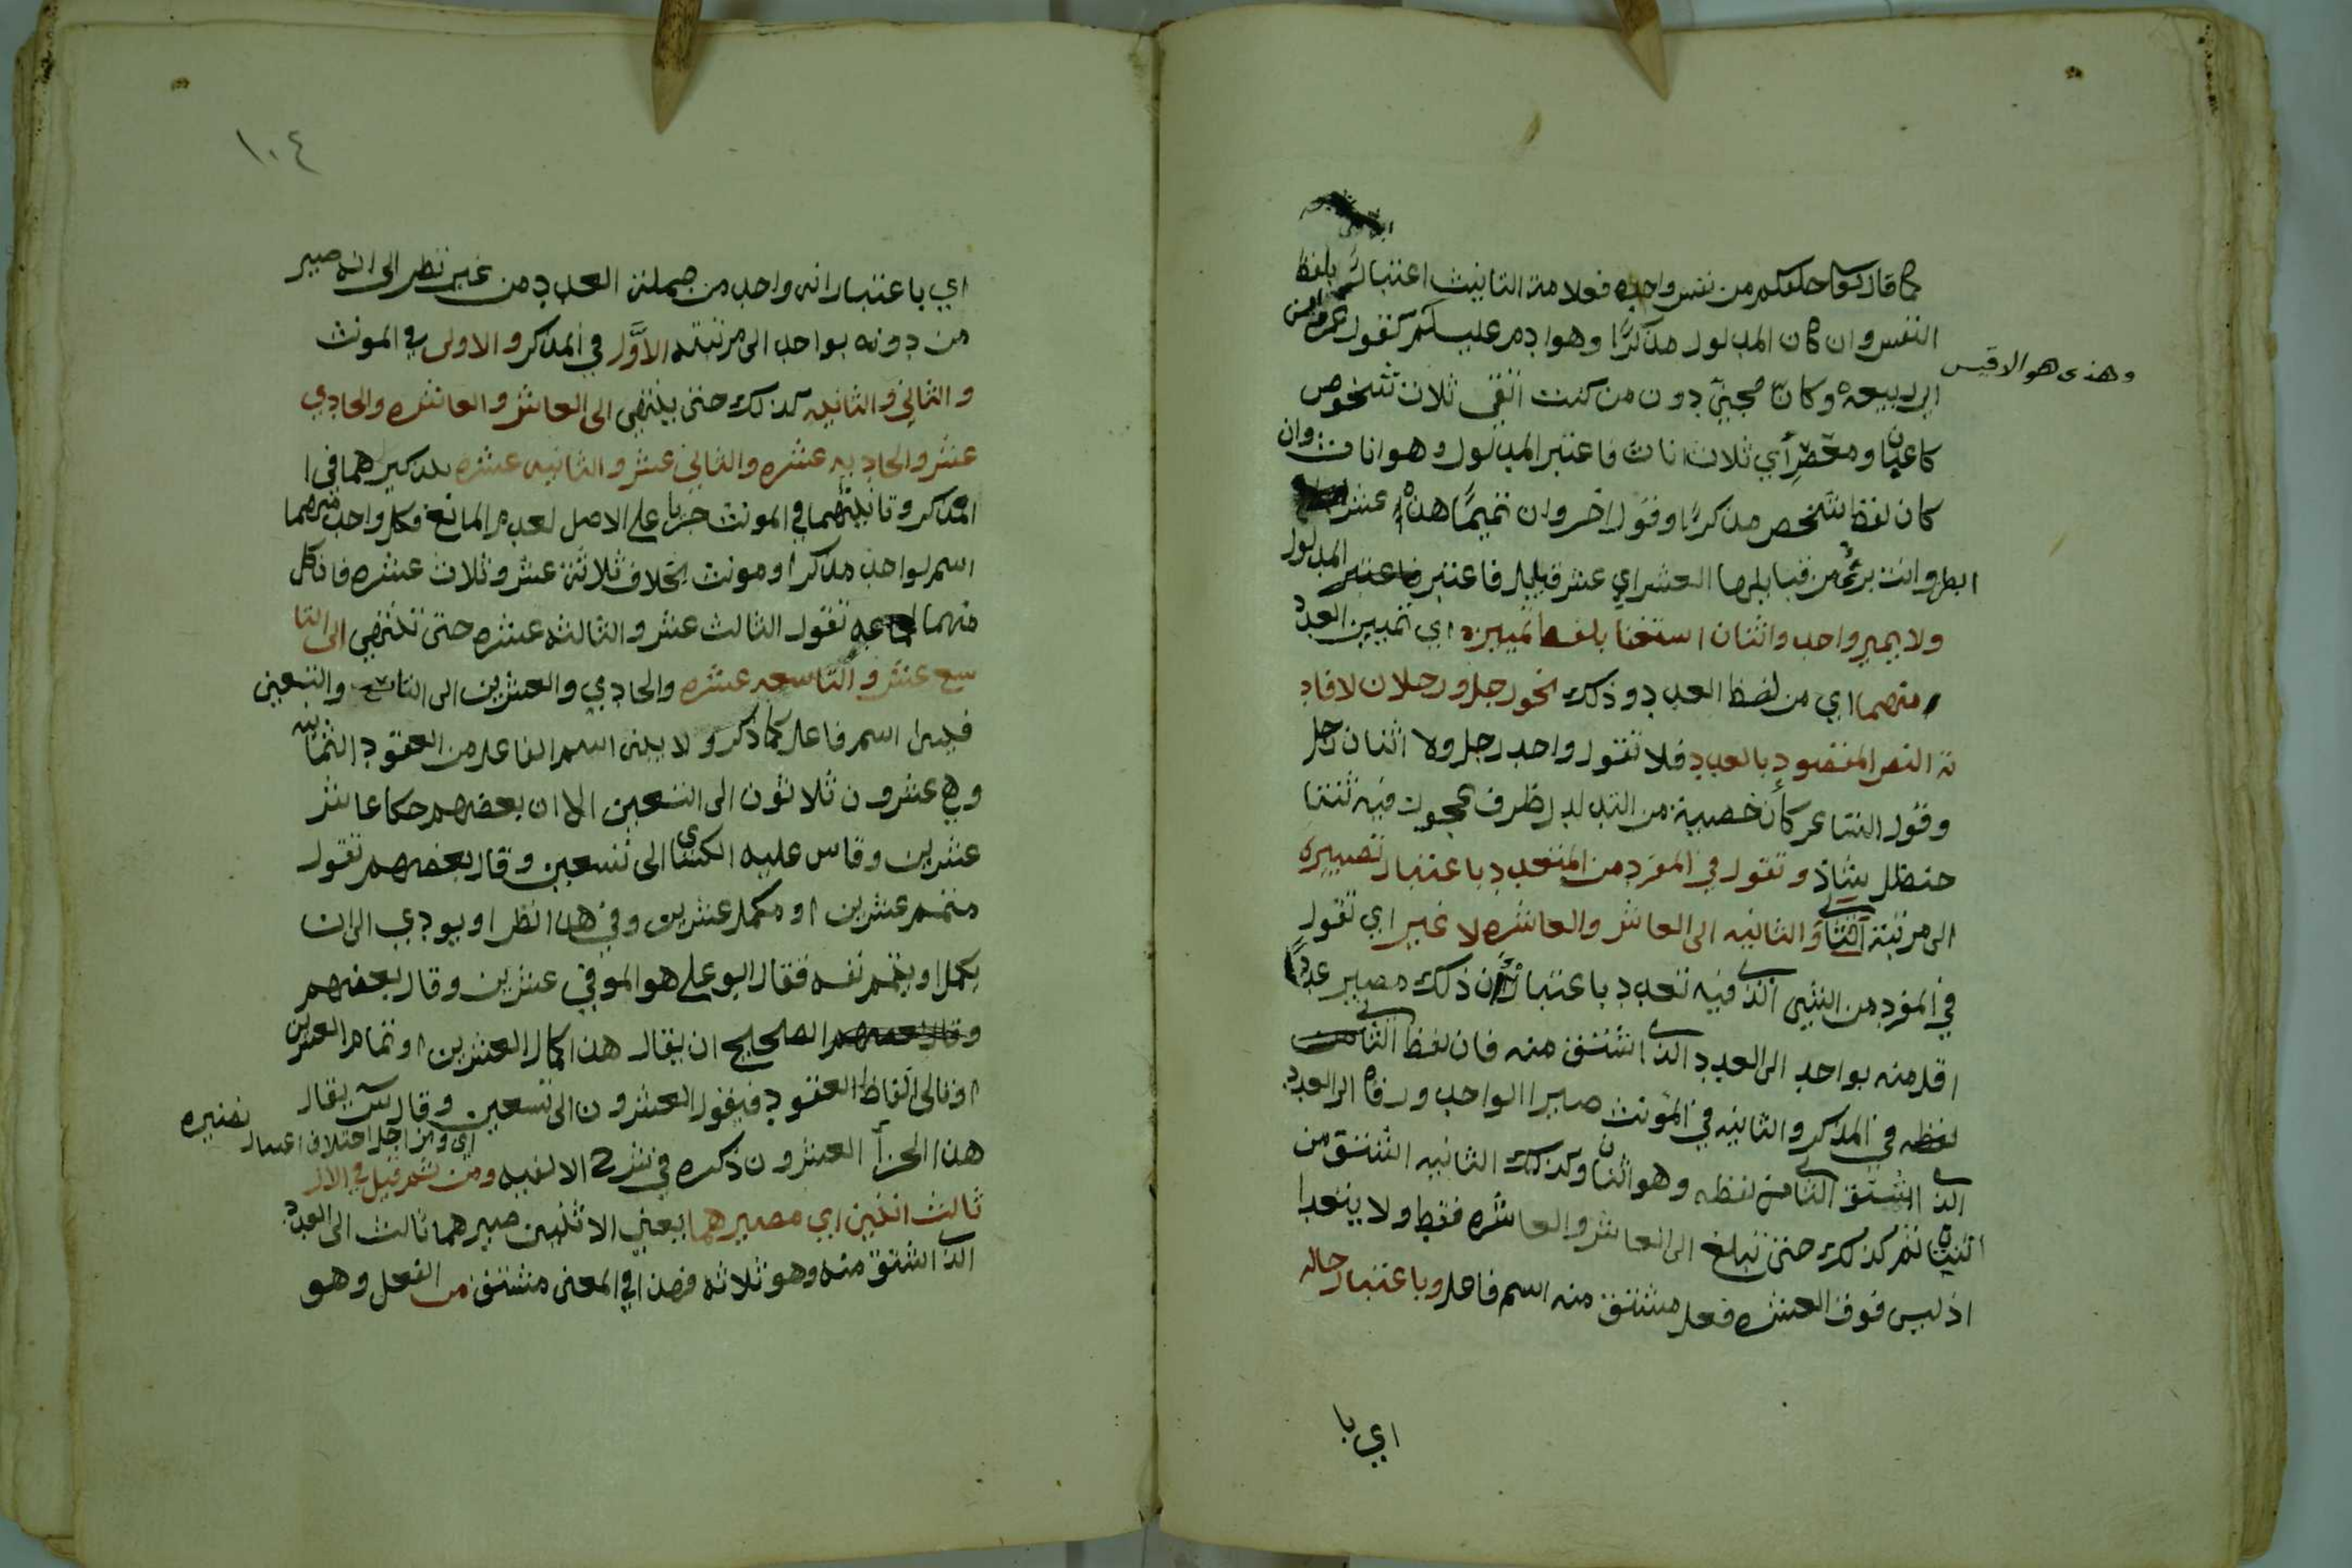 كما قال تعالى خلقكم من نفس واحده فعلامة التانيث اعتبارا بلفظ
النفس وان كان المدلول مذكرًا وهو ادم عليسلم كقول عمر ابن
وهذى هو الاقيس
ابي ربيعه وكان مجنيّ دون من كنت اتقي ثلاث شخوص
كاعبان ومعصر أي ثلاث اناث فاعتبر المدلول وهو اناث وان
كان لفظ الشخص مذكرًا وقول اخر وان تميمًا هذه عشر
ابطن وانت برئ من قبايلها العشر اي عشر قبايل فاعتبر المدلول
ولا يميز واحد واثنان استغنا بلفظ تمييزه اي تمييز العدد
منهما اي من لفظ العدد وذلك نحو رجل ورجلان لافاد
ته النص المقصود بالعدد فلا تقول واحد رجل ولا اثنان رجل
وقول الشاعر كأن خصييه من التدلدل ظرف عجوز فيه ثنتا
حنظل شاذ وتقول في المفرد من المتعدد باعتبار تصييره
الى مرتبة الثاني والثانيه الى العاشر والعاشره لا غير اي تقول
في المفرد من الشيء الذي فيه تعدد باعتبار ان ذلك مصير عددًا
اقل منه بواحد الى العدد الذي اشتق منه فان لفظ الثاني
لفظه في المذكر والثانيه في المونث صيرا الواحد ورقاه الى العدد
الذي اشتق الثاني من لفظه وهو اثنان وكذلك الثانيه اشتق من
اثنين ثم كذلك حتى تبلغ الى العاشر والعاشره فقط ولا يتعدا
اذ ليس فوق العشره فعل مشتق منه اسم فاعل وباعتبار حاله
اي با
١٠٤
اي باعتبار انه واحد من جملة العدد من غير نظر الى انه صير
من دونه بواحد الى مرتبته الاوَّل في المذكر والاولى في المونث
والثاني والثانيه كذلك حتى ينتهي الى العاشر والعاشره والحادي
عشر والحاديه عشره والثاني عشر والثانيه عشره بتذكيرهما في ا
المذكر وتانيثهما في المونث جريا على الاصل لعدم المانع فكل واحد منهما
اسم لواحد مذكر او مونث بخلاف ثلاثة عشر وثلاث عشره فان كل
منهما لجماعه تقول الثالث عشر والثالثه عشره حتى تنتهي الى التا
سع عشر والتاسعه عشره والحادي والعشرين الى التاسع والتسعين
فليس اسم فاعل كما ذكر ولا يبنى اسم الفاعل من العقود الثمانيه
وهي عشرون ثلاثون الى التسعين الا ان بعضهم حكا عاشر
عشرين وقاس عليه الكسائي الى تسعين وقال بعضهم تقول
متمم عشرين او مكمل عشرين وفي هذا نظر او يودي الى ان
يكمل او يتمم نفسه فقال ابو علي هو الموفي عشرين وقال بعضهم
وقال بعضهم الصحيح ان يقال هذا كمال العشرين او تمام العشرين
او تالي الفاظ العقود فيقول العشرون الى تسعين وقال س يقال
هذا الجزأ العشرون ذكره في شرح الالفيه ومن ثم قيل في الاول
اي ومن اجل اختلاف اعتبار تصييره
ثالث اثنين اي مصيرهما يعني الاثنين صيرهما ثالث الى العدد
الذي اشتق منه وهو ثلاثه فهذا في المعنى مشتق من الفعل وهو